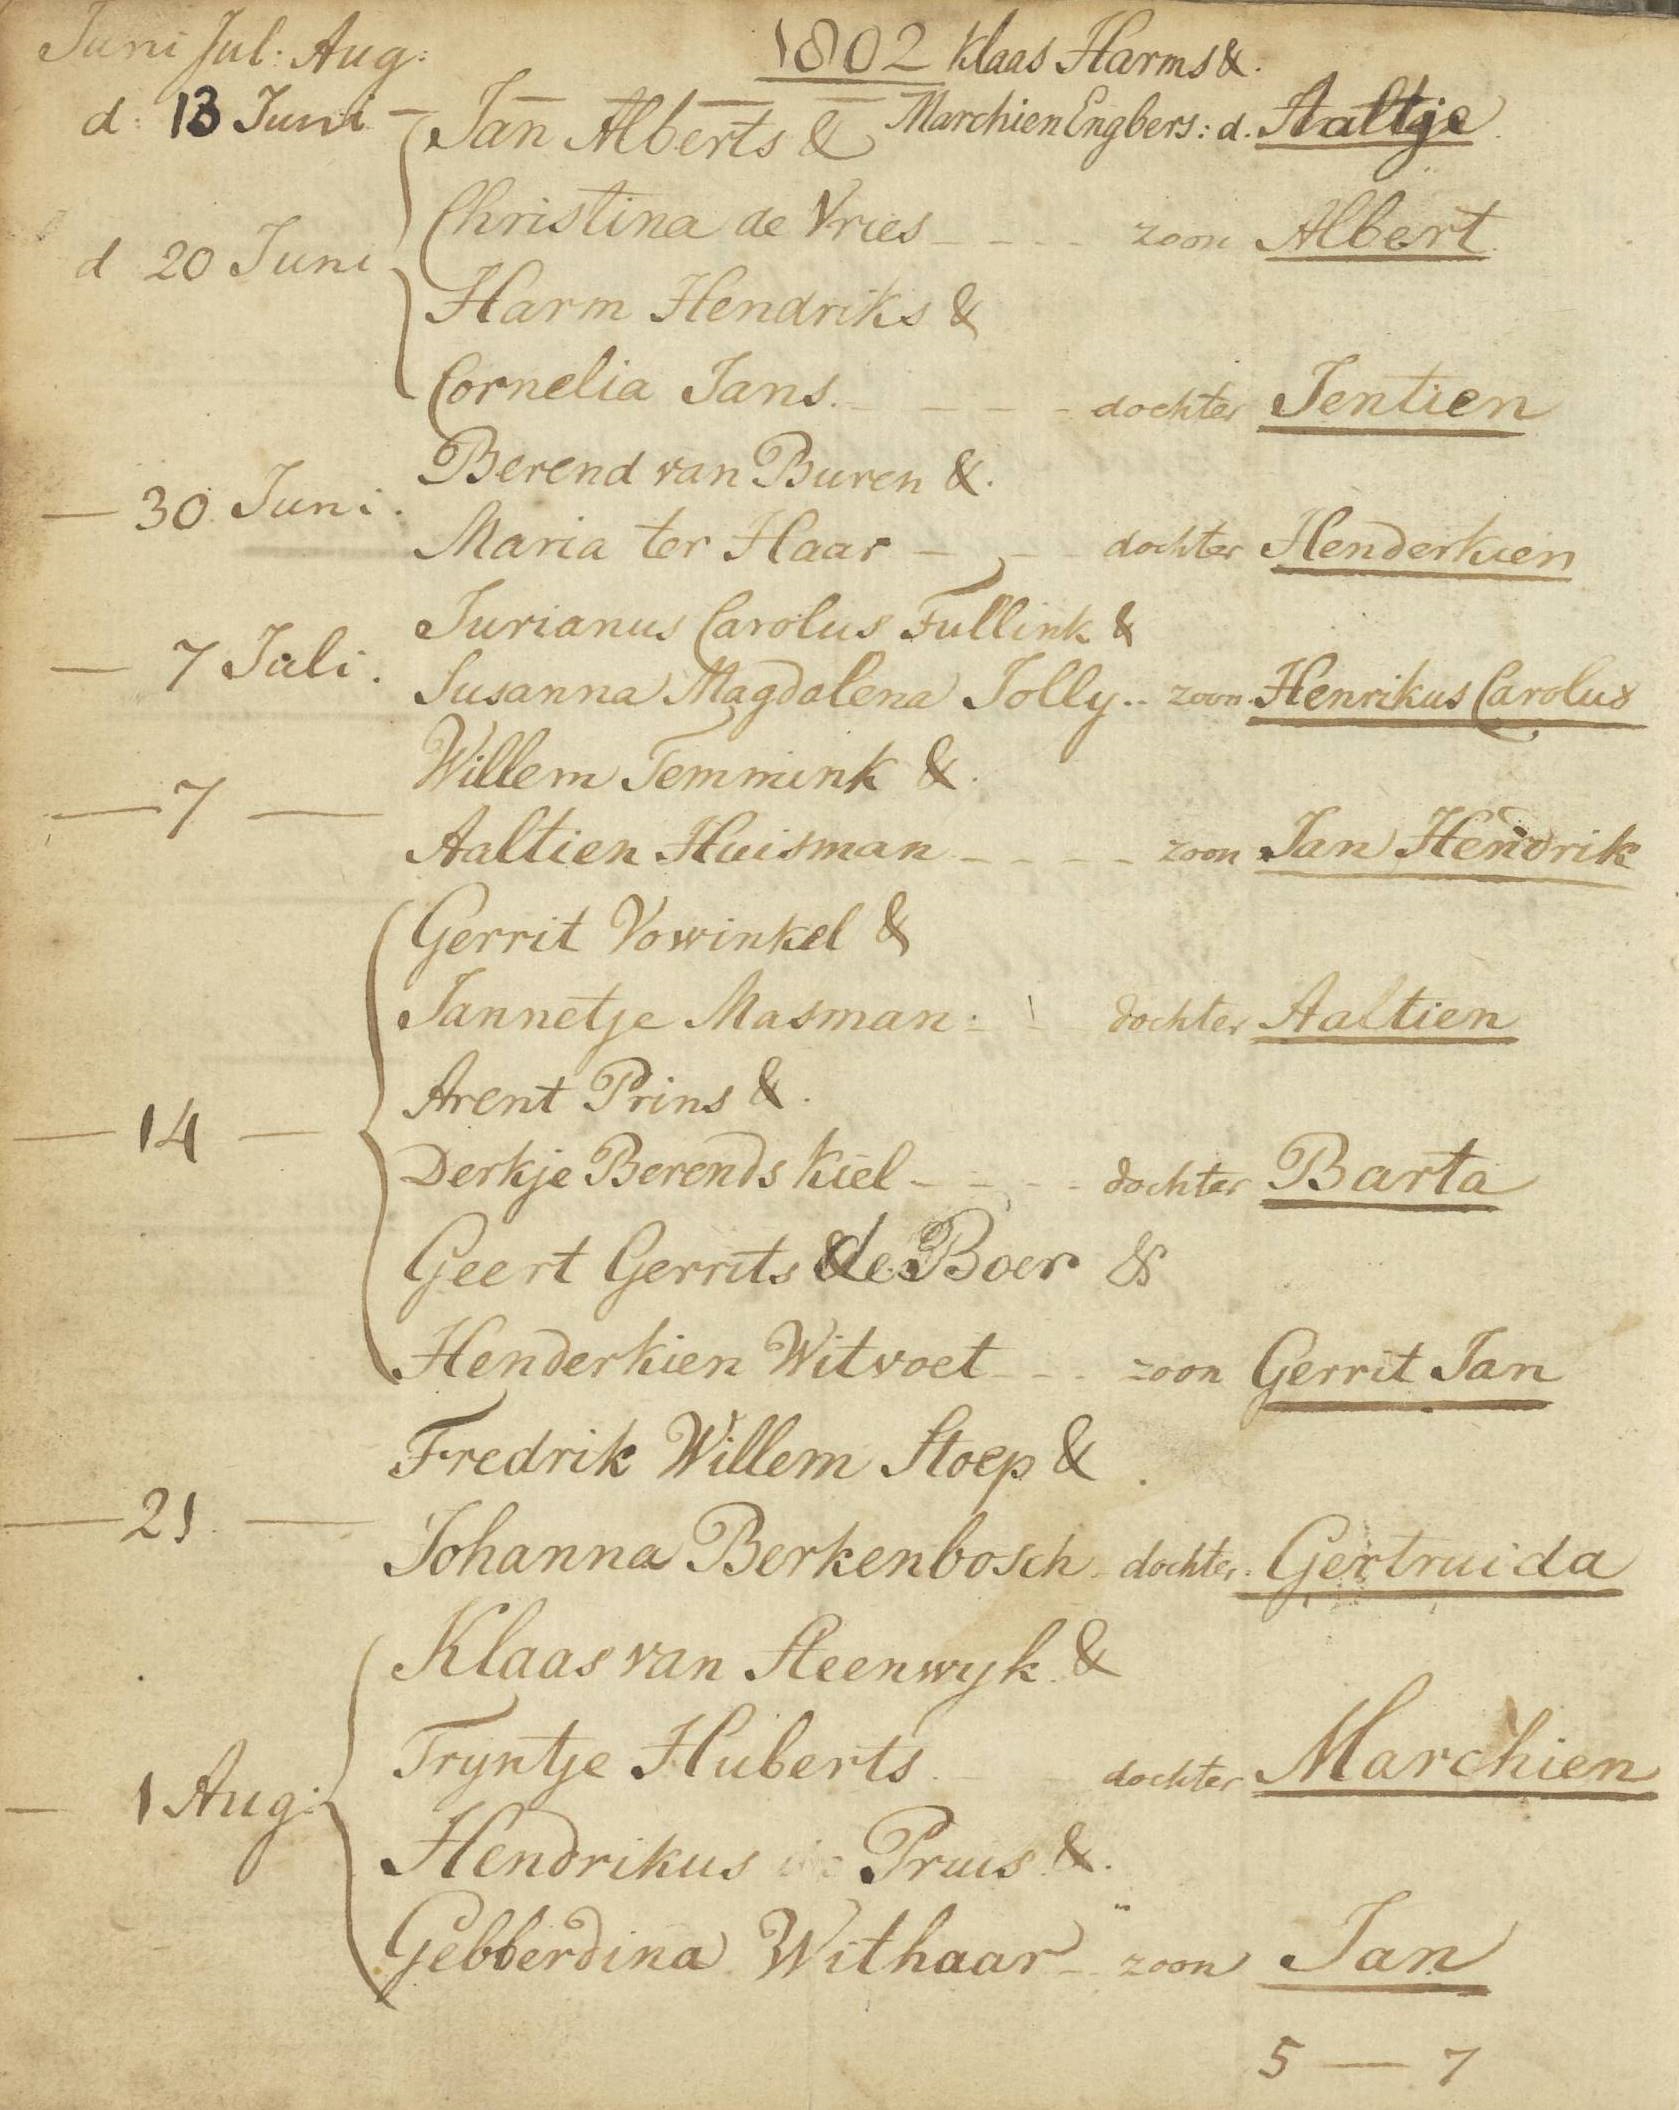 Juni Jul: Aug: 1802 Klaas Harms &.
d: 13 Juni — Marchien Engbers: d. Aaltje
Jan Alberts &
d 20 Juni Christina de Vries - - - - zoon Albert
Harm Hendriks &
Cornelia Jans. - - - - dochter Jentien
Berend van Buren &.
— 30 Juni. Maria ter Haar - - - dochter Henderkien
Jurianus Carolus Fullink &
— 7 Juli. Susanna Magdalena Jolly .. zoon. Henrikus Carolus
Willem Temmink &.
— 7 — Aaltien Huisman - - - - zoon Jan Hendrik
Gerrit Vowinkel &
Jannetje Masman - - dochter Aaltien
Arent Prins &.
— 14 — Derkje Berends Kiel - - - - dochter Barta
Geert Gerrits de Boer &
Henderkien Witvoet - - - zoon Gerrit Jan
Fredrik Willem Stoep &
— 21. — Johanna Berkenbosch - dochter. Gertruida
Klaas van Steenwyk. &
Tryntje Huberts - dochter Marchien
— 1 Aug: Hendrikus Pruis &.
Gebberdina Withaar - zoon Jan
5 — 7